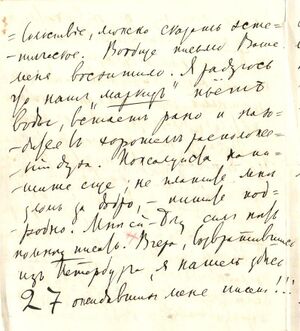 =ольствие, можно сказать эсте-
-тическое. Вообще письмо Ваше
меня восхитило. Я радуюсь
что наш „маркиз" пьетъ
воды, встаетъ рано и нахо-
-дится в хорошемъ расположе-
-нии духа. Пожалуйста напи-
-шите еще; не платите мне
зломъ за добро, – пишите под-
робно. Мне
понемногу писать. Вчера, возвратившись
изъ Петербурга, я нашелъ здесь
27 ожидавшихъ меня писем!!!